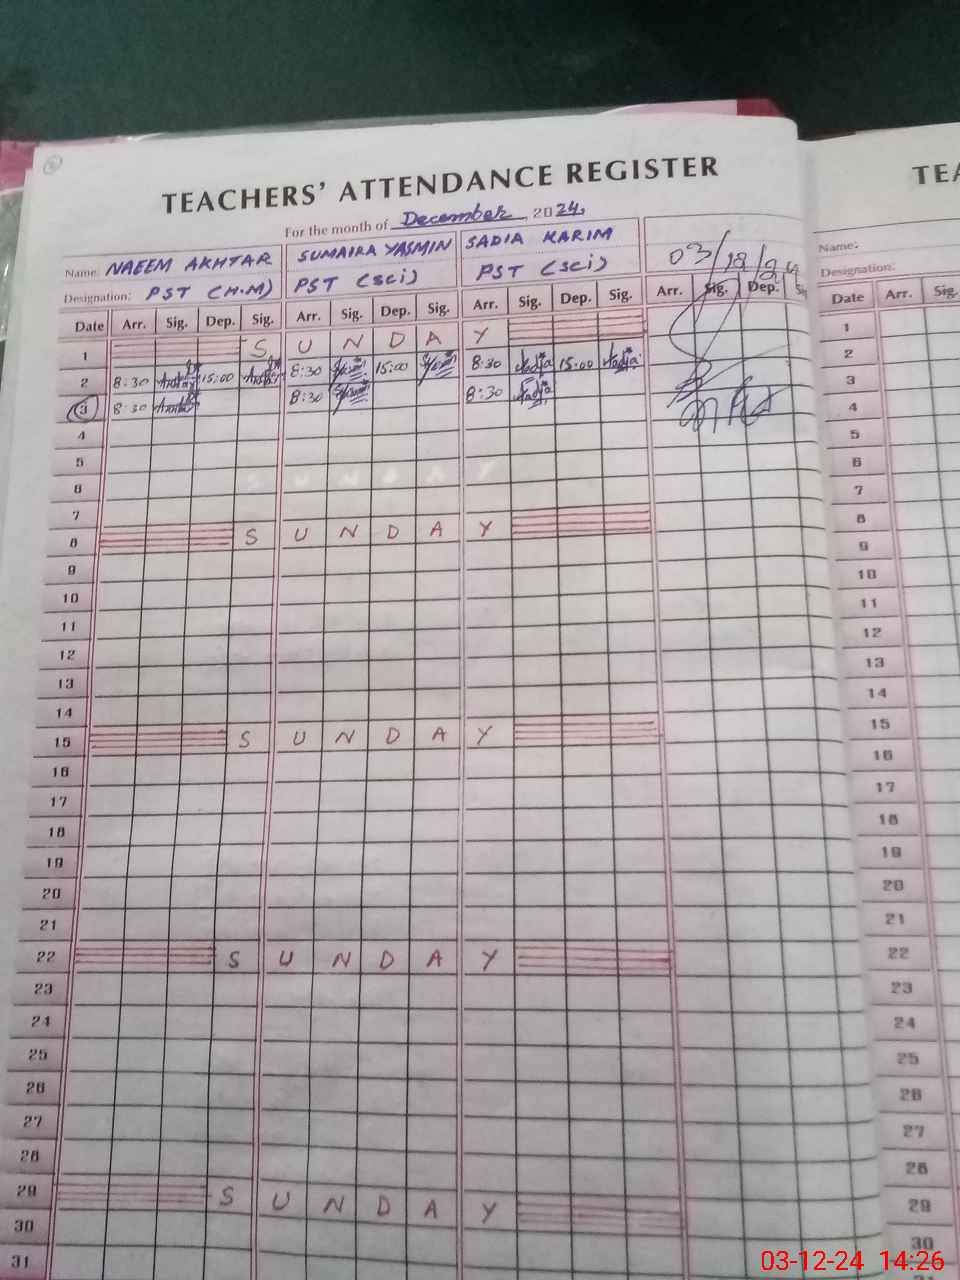 TEACHERS' ATTENDANCE REGISTER
For the month of December, 2024,
Name: NAEEM AKHTAR SUMAIRA YASMIN SADIA KARIM
Designation: PST (H.M) PST (SCi) PST (SCi)
03/12/24
Date Arr. Sig. Dep. Sig. Arr. Sig. Dep. Sig. Arr. Sig. Dep. Sig. Arr. Sig. Dep.
1 S U N D A Y
2 8:30 15:00 8:30 15:00 8:30 Sadia 15:00 Sadia
3 8:30 8:30 8:30 Sadia
4
5
6
7
8 S U N D A Y
9
10
11
12
13
14
15 S U N D A Y
16
17
18
19
20
21
22 S U N D A Y
23
24
25
26
27
28
29 S U N D A Y
30
31
TEA
Name:
Designation:
Date Arr. Sig.
1
2
3
4
5
6
7
8
9
10
11
12
13
14
15
16
17
18
19
20
21
22
23
24
25
26
27
28
29
30
03-12-24 14:26